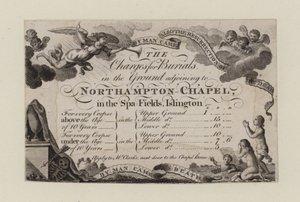 BY MAN CAME
ALSO THE RESURRECTION
THE
Charges for Burials
in the Ground adjoining to
NORTHAMPTON CHAPEL,
in the Spa Fields, Islington.
For every Corpse above the Age of 10 Years in the Upper Ground 1
Middle do. 15
Lower 10
For every Corpse under the Age of 10 Years in the Upper Ground 10
Middle do. 7 6
Lower do. 5
Apply to Mr. Clarke, next door to the Chapel House
BY MAN CAME DEATH